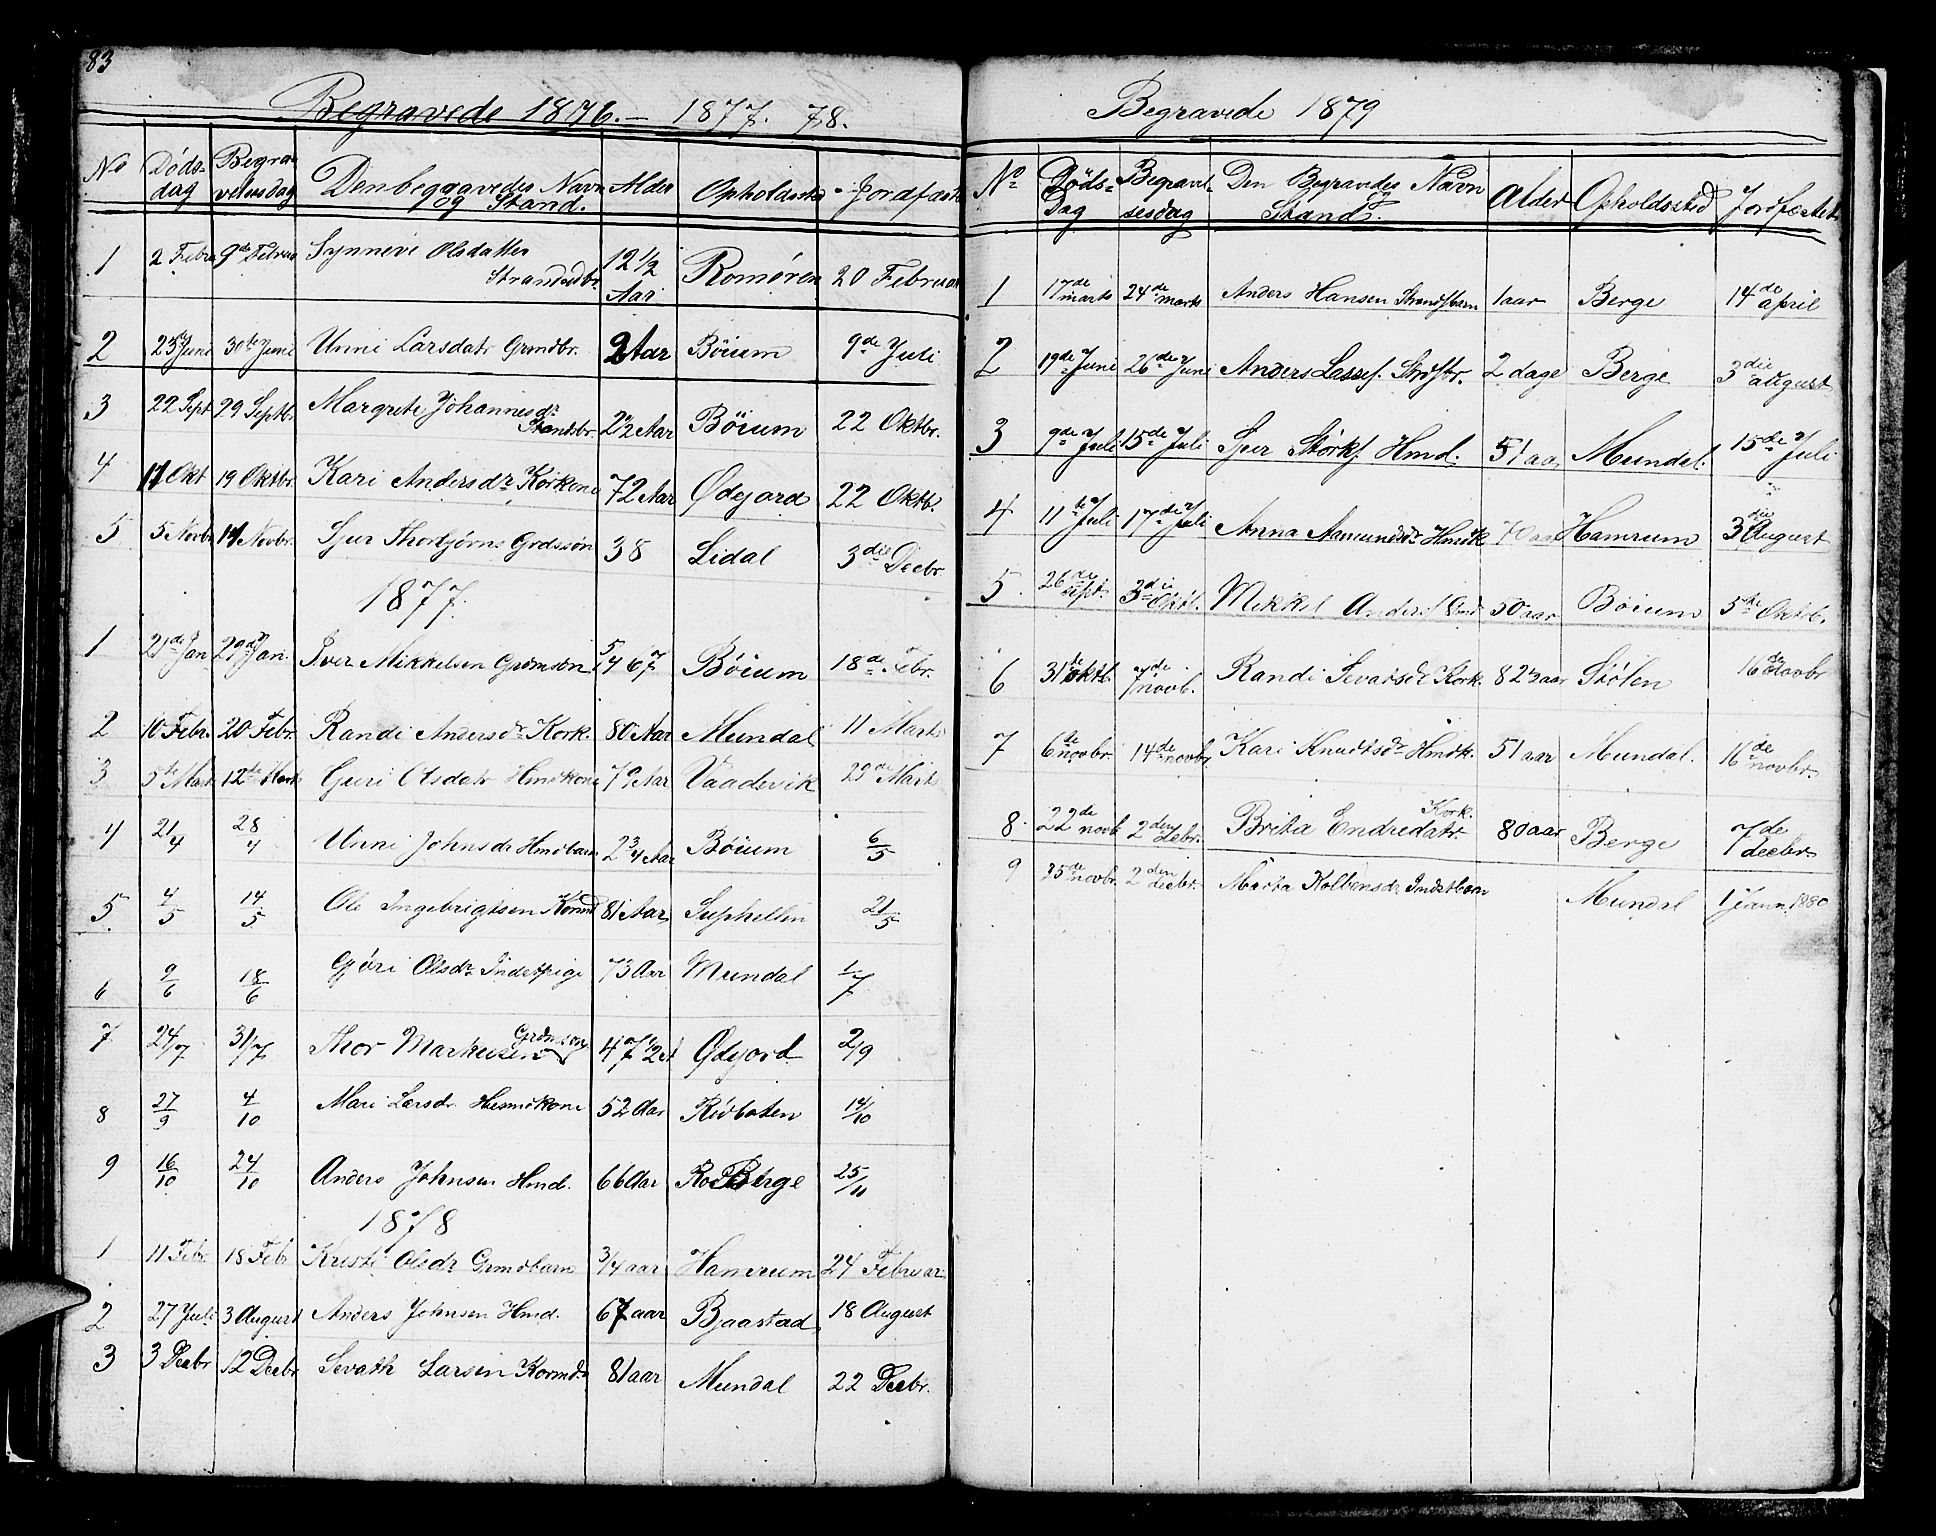 83
Begravede 1876. – 1877. 78.
No Døds-dag Begravelsesdag Den begravedes Navn og Stand. Alder Opholdssted Jordfæstet
1 2 Febr 9de Februar Synneve Olsdatter Strandsdbr. 12 1/2 Aar Romøren 20 Februar
2 23 Juni 30te Juni Unni Larsdatr Grmdbr. 2 Aar Böium 9de Juli
3 22 Sept 29 Septbr. Margrete Johannesdr Stansbr. 2 1/2 Aar Böium 22 Oktbr.
4 11 Okt 19 Oktbr. Kari Andersdr Korkone 72 Aar Ødegard 22 Oktb.
5 5 Novbr 14 Novbr. Sjur Thorbjørns Grdssøn 38 Lidal 3die Decbr
1877.
1 21de Jan 29de Jan. Iver Mikkelsen Grdmsøn 67 Böium 18de Febr.
2 10 Febr. 20 Febr. Randi Andersdr Kork. 80 Aar Mundal 11 Marts
3 5te Marts 12te Mark Guri Olsdatr Hmdkone 79 Aar Vaadevik 29de Marts
4 21/4 28/4 Unni Johnsdr Hmdbarn 2 3/4 Aar Böium 6/5
5 4/5 14/5 Ole Ingebrigtsen Kormd 81 Aar Suphellen 21/5
6 9/6 18/6 Gjöri Olsdr Indstpige 73 Aar Mundal 1/7
7 24/7 31/7 Thor Markusen Grdmson 47 1/2 Ødejord 2/9
8 27/9 4/10 Mari Larsdr. Husmdkone 52 Aar Rödboten 14/10
9 16/10 24/10 Anders Johnsen Hmd. 66 Aar Berge 25/11
1878
1 11 Febr. 18 Febr Kristi Olsdr Grmdbarn 3/4 aar Hamrum 24 Februar
2 27 Juli 3 August Anders Johnsen Hmd. 67 aar Bjaastad 18 August
3 3 Decbr 12 Decbr Sevath Larsen Kormd 81 aar Mundal 22 Decbr.
Begravede 1879
No Døds-Dag Begravelsesdag Den Begravedes Navn og Stand. Alder Opholdssted Jordfæstet
1 17de marts 24de marts Anders Hansen Strandsbarn 1 aar Berge 14de april
2 19de Juni 26de Juni Anders Lassef. Strdsbr. 2 dage Berge 3die august
3 9de Juli 15de Juli Sjur Störkf. Hmd. 51 aar Mundal. 15de Juli
4 11te Juli 17de Juli Anna Aamundsdr Hmdk 70 aar Hamrum 3die August
5 26de sept. 3die Oktb. Mikkel Andersf. 50 aar Böium 5te Oktb.
6 31te oktb. 7de novb. Randi Sevatsdr Kork. 82 aar Stölen 16de novbr
7 6de novbr. 14de novbr. Kari Knudtsdr Hmdk. 51 aar Mundal. 16de novbr.
8. 22de novb 2den decbr. Brita Endredatr Kork. 80 aar Berge 7de decbr.
9 25de novbr. 2den decbr. Marta Kolbensdr Indstbarn Mundal 1 Janu. 1880